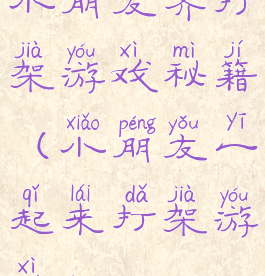 朋友 打
jià yóu xì mì jí
架游戏秘籍
xiǎo péng yǒu yī
（小朋友一
qǐ lái dǎ jià yóu
起来打架游
xì